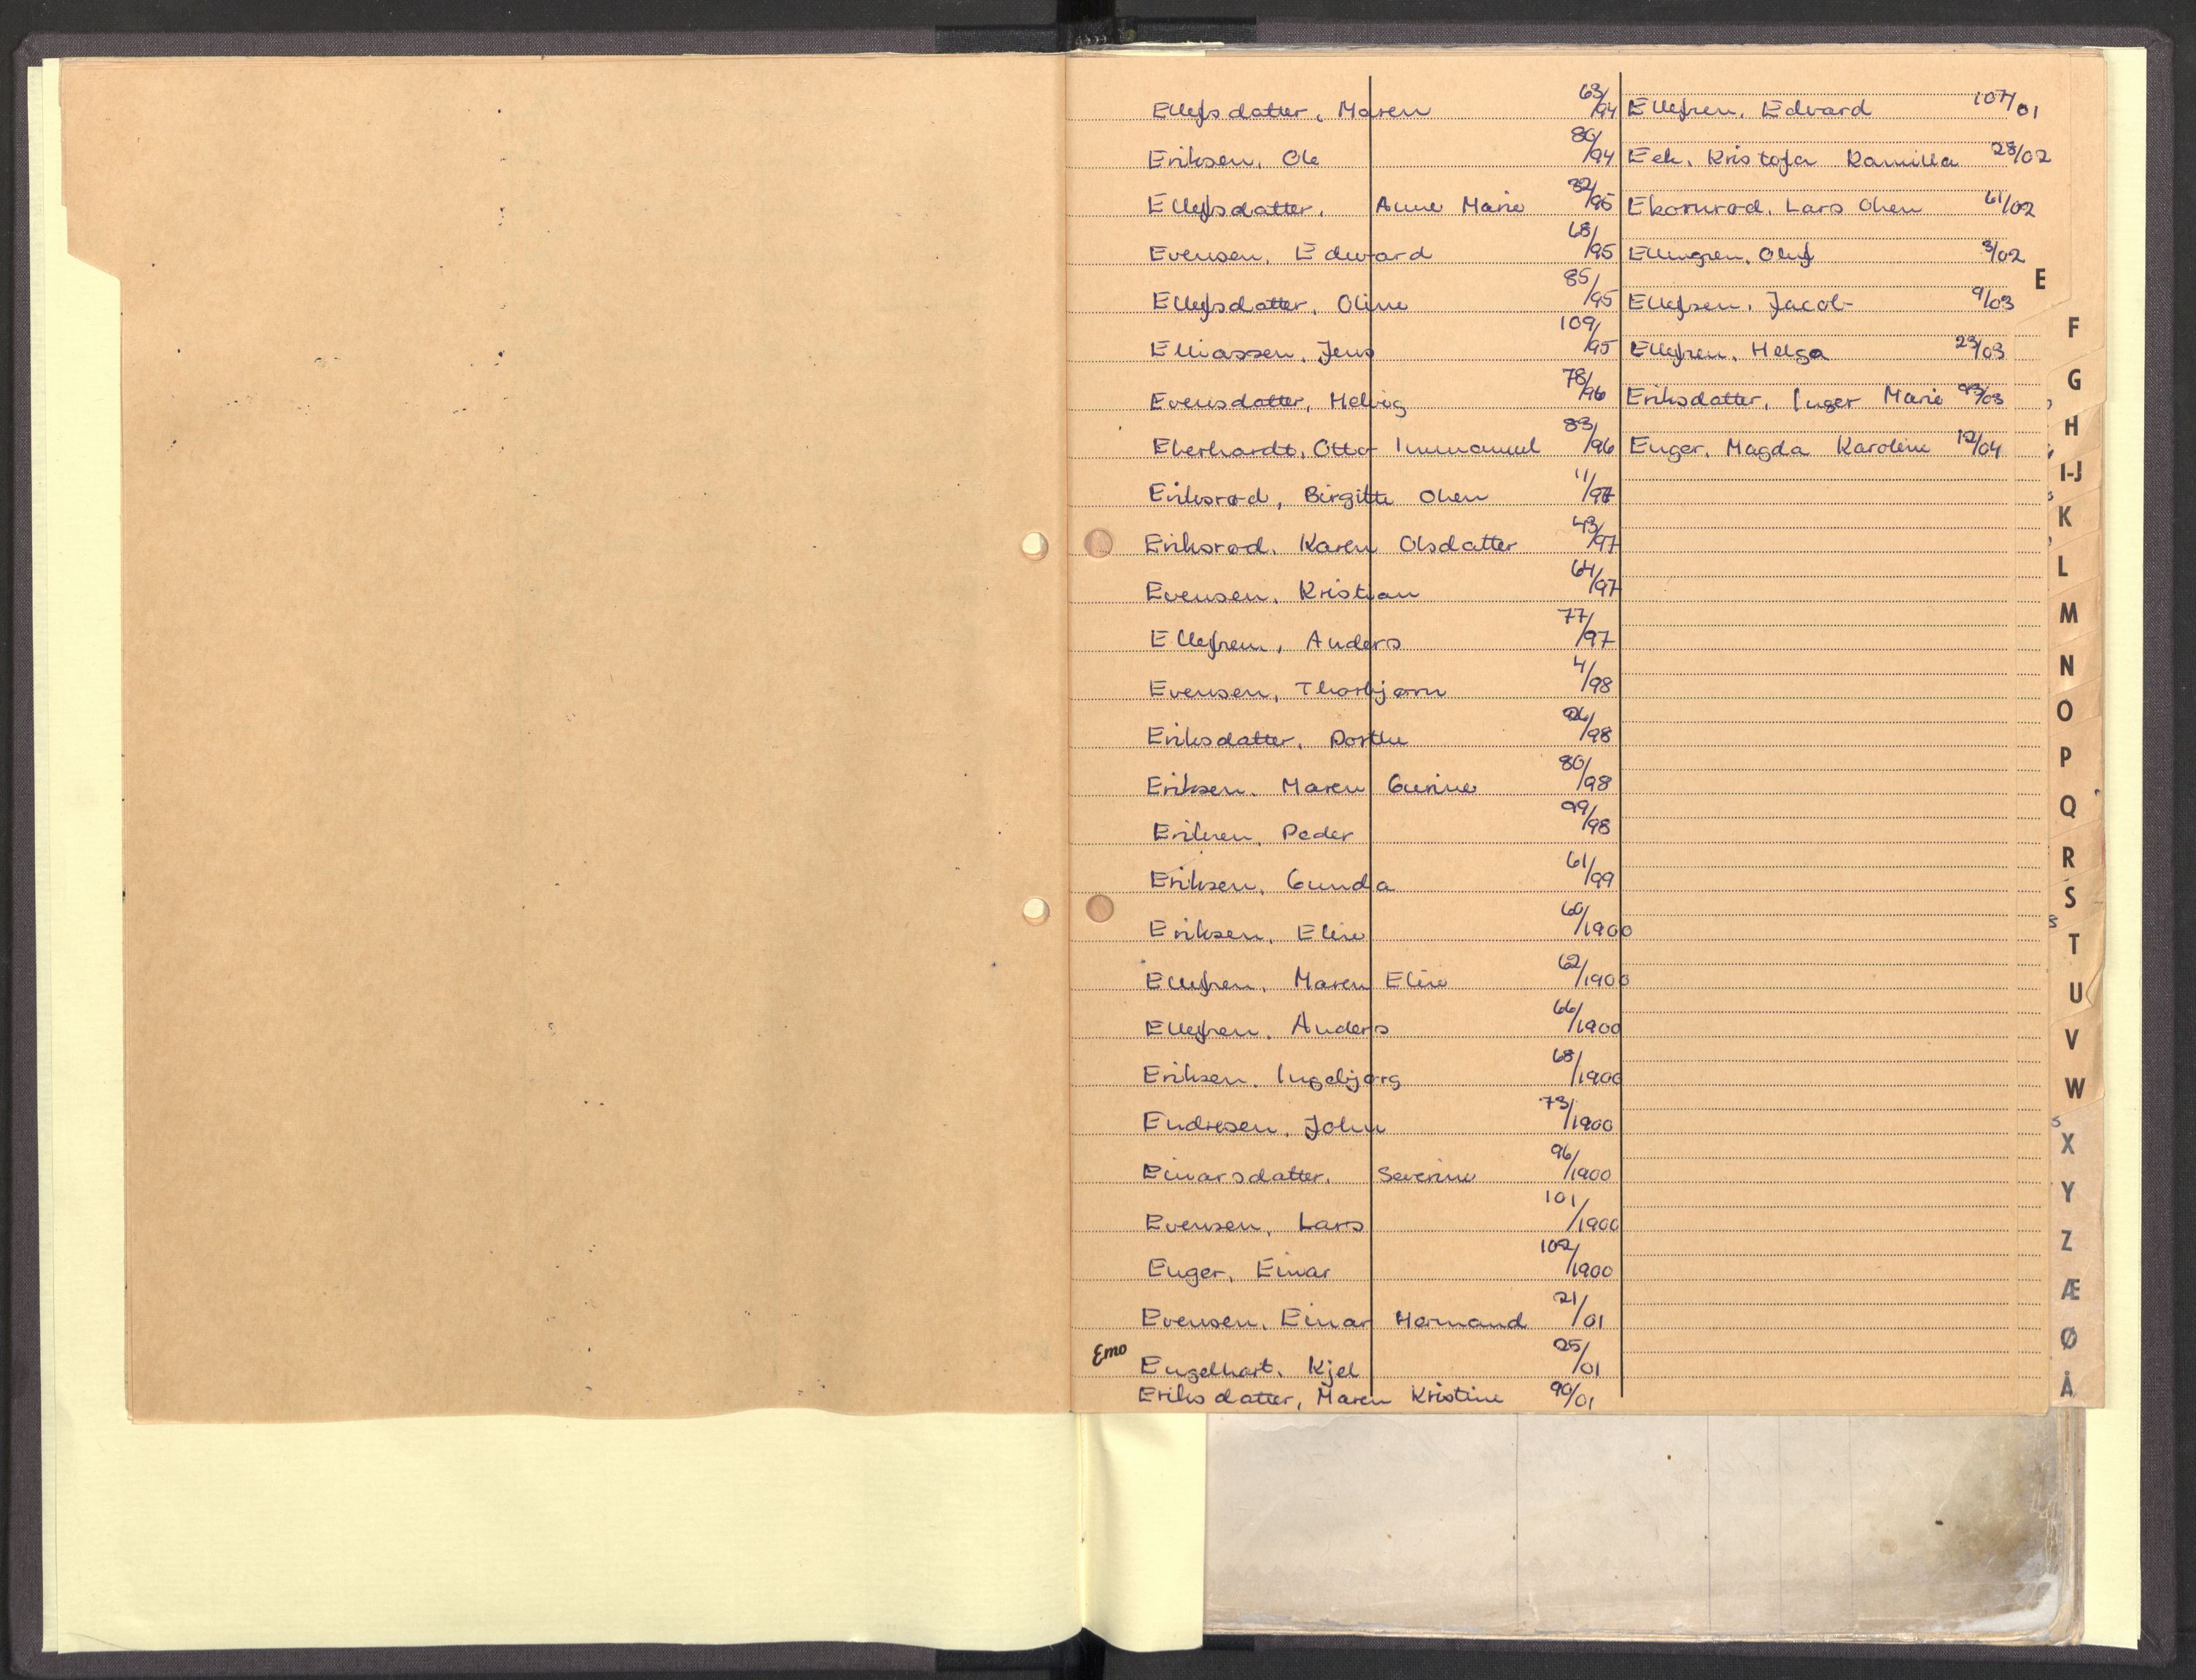 Ellefsdatter, Maren 63/94
Eriksen, Ole 80/94
Ellefsdatter, Anne Marie 32/95
Evensen, Edward 68/95
Ellefsdatter, Oline 85/95
Elliassen, Jens 109/95
Evensdatter, Helvig 78/96
Eberhardt, Otto Immanuel 83/96
Eriksrød, Birgitte Olsen 11/97
Eriksrød, Karen Olsdatter 43/97
Evensen, Kristian 64/97
Ellefsen, Anders 77/97
Evensen, Thorbjørn 4/98
Eriksdatter, Dorthe /98
Eriksen, Maren Gurine 80/98
Eriksen, Peder 99/98
Eriksen, Gunda 61/99
Eriksen, Elise 60/1900
Ellefsen, Maren Elise 62/1900
Ellefsen, Anders 66/1900
Eriksen, Ingebjørg 68/1900
Endresen, John 73/1900
Einarsdatter, Severine 96/1900
Evensen, Lars 101/1900
Enger, Einar 102/1900
Evensen, Einar Hermand 21/01
Emo
Engelhart, Kjel 25/01
Eriksdatter, Maren Kristine 90/01
Ellefsen, Edvard 107/01
Eek, Kristofa Kamilla 28/02
Ekornrød, Lars Olsen 61/02
Ellingsen, Oluf 3/02
Ellefsen, Jacob 9/03
Ellefsen, Helga 23/03
Eriksdatter, Inger Marie 93/03
Enger, Magda Karoline 12/04
E
F
G
H
I-J
K
L
M
N
O
P
Q
R
S
T
U
V
W
X
Y
Z
Æ
Ø
Å